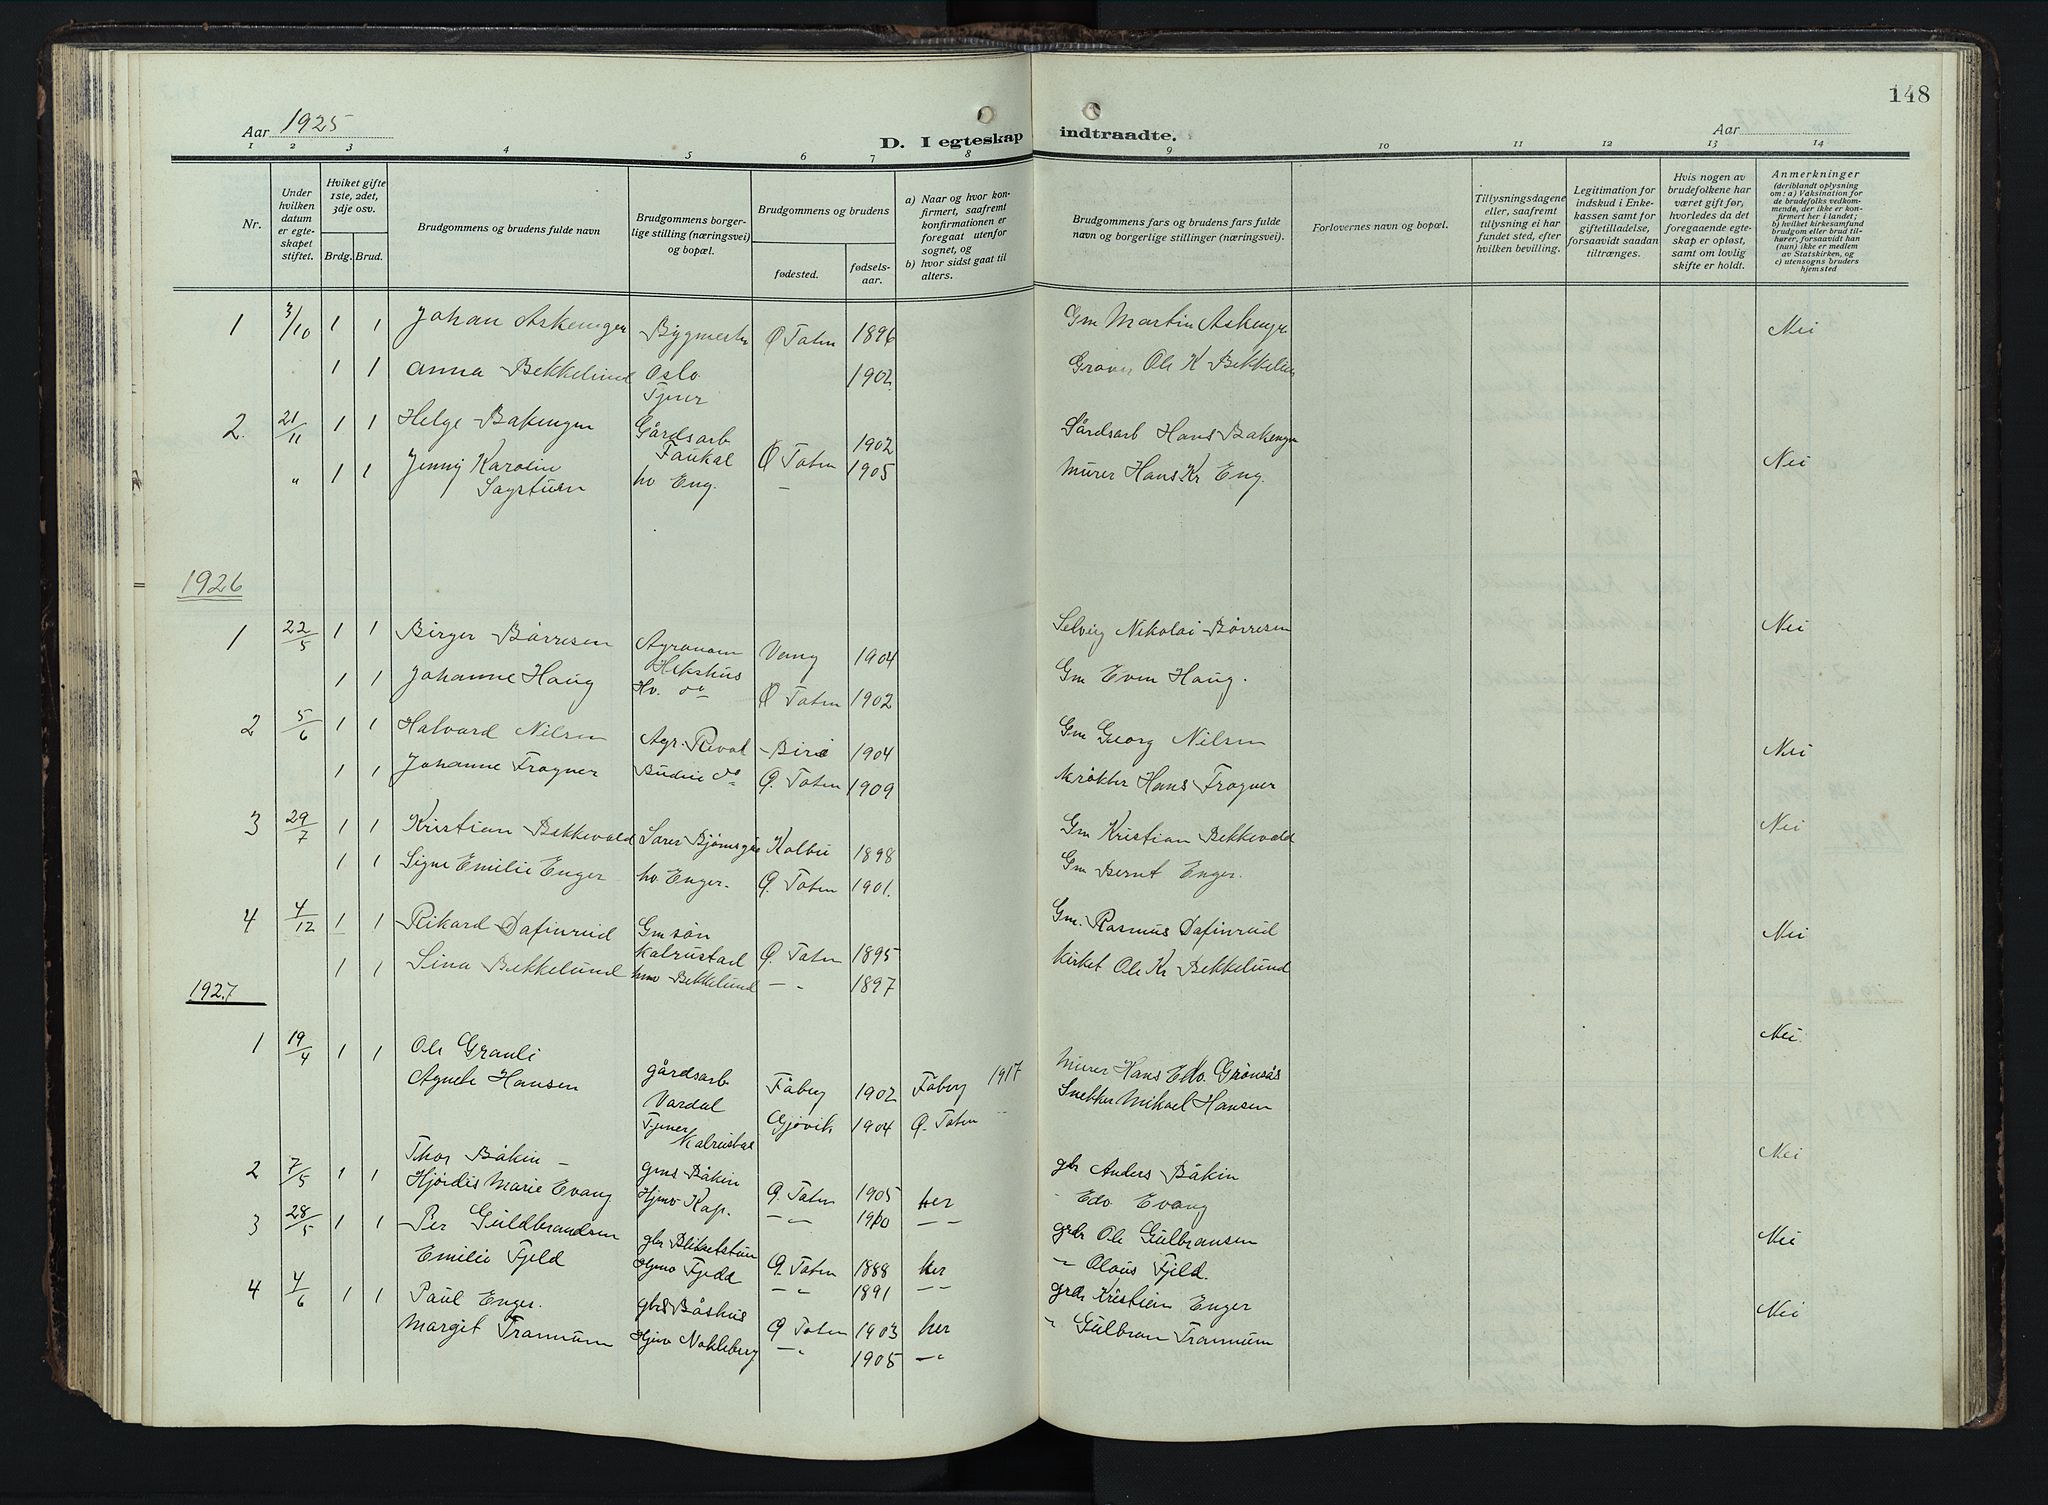 148
Aar 1925
D. I egteskap indtraadte.
Aar
1 2 3 4 5 6 7 8 9 10 11 12 13 14
Nr.
Under hvilken datum er egteskapet stiftet.
Hviket gifte 1ste, 2det, 3dje osv.
Brdg. Brud.
Brudgommens og brudens fulde navn
Brudgommens borgerlige stilling (næringsvei) og bopæl.
Brudgommens og brudens
fødested.
fødselsaar.
a) Naar og hvor konfirmert, saafremt konfirmationen er foregaat utenfor sognet, og
b) hvor sidst gaat til alters.
Brudgommens fars og brudens fars fulde navn og borgerlige stillinger (næringsvei).
Forlovernes navn og bopæl.
Tillysningsdagene eller, saafremt tillysning ei har fundet sted, efter hvilken bevilling.
Legitimation for indskud i Enkekassen samt for giftetilladelse, forsaavidt saadan tiltrænges.
Hvis nogen av brudefolkene har været gift før, hvorledes da det foregaaende egteskap er opløst, samt om lovlig skifte er holdt.
Anmerkninger (deriblandt oplysning om: a) Vaksination for de brudefolks vedkommende, der ikke er konfirmert her i landet; b) hvilket kirkesamfund brudgom eller brud tilhører, forsaavidt han (hun) ikke er medlem av Statskirken, og c) utensogns bruders hjemsted
1 3/10 1 1 Johan Askenger Bygmester Ø Toten 1896 Gm Martin Askenger Nei
1 1 Anna Bekkelund Oslo 1902 Ole K Bekkelund
Tjener
2. 21/11 1 1 Helge Bakenger Gårdsarb 1902 Gårdsarb Hans Bakengn
Faukal Ø Toten
" 1 1 Jenny Karolin hv Eng. - 1905 Murer Hans Kr Eng. Nei
Sagstuen
1926
1 22/5 1 1 Birger Børresen Agronom Vang 1904 Selveig Nikolai Børresen Nei
Hekshus
1 1 Johanne Haug Hv. do Ø Toten 1902 Gm Even Haug.
2 5/6 1 1 Halvard Nilsen Agr. Reval Biri 1904 Gm Georg Nilsen Nei
1 1 Johanne Frogner Budeie do Ø. Toten 1909 Hans Frogner
3 29/7 1 1 Kristian Bekkevold Bjørnsgå Kolbu 1898 Gm Kristian Bekkevold Nei
1 1 Signe Emilie Enger hv. Enger. Ø. Toten 1901. Gm Bernt Enger.
4 4/12 1 1 Rikard Dafinrud Gm søn 1895 Gm. Rasmus Dafinrud Nei
Kalrustad Ø. Toten
1 1 Sina Bekkelund hmv Bekkelund - " - 1897 Kirket Ole Kr Bekkelund
1927
1 19/4 1 1 Ole Granli gårdsarb Fåberg 1902 Fåberg 1917 Murer Hans Edv. Grønsås Nei.
Vardal
Agnete Hansen Tjener Gjøvik 1904 Ø. Toten Snekker Mikael Hansen
Kalrustad
2 7/5 1 1 Thor Båkin - gms Båkin Ø. Toten 1905 her gbr Anders Båkin Nei
Hjørdis Marie Evang Hjmv Kap. - " - 1910 - " - Edv Evang
3 28/5 1 1 Per Guldbrandsen gbr Bliksetstuen Ø. Toten 1888 her grdr Ole Gulbransen Nei
Emilie Fjeld Hjmv Fjeld - " - 1891 - " - " Olaus Fjeld.
4 4/6 1 1 Paul Enger. gbrs Båshus Ø Toten 1903 her grdr Kristian Enger Nei
Margit Tranmum Hjmv Nøkleberg - " - 1905 - " - " Gulbran Tranmum